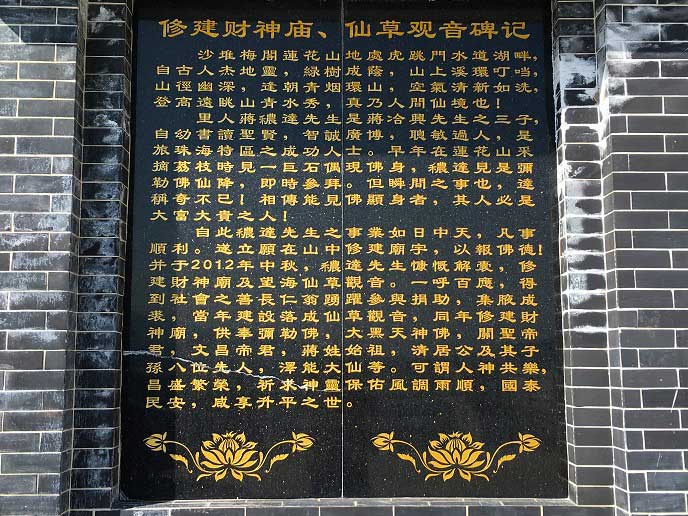 修建财神庙、仙草观音碑记
沙堆梅閣蓮花山地處虎跳門水道湖畔，
自古人杰地靈，綠樹成蔭，山上溪環叮噹，
山徑幽深，逢朝青烟環山，空氣清新如洗，
登高遠眺山青水秀，真乃人間仙境也！
里人蔣禯達先生是蔣冶興先生之三子，
自幼書讀聖賢，智誠廣博，聰敏過人，是
旅珠海特區之成功人士。早年在蓮花山采
摘荔枝時見一巨石偶現佛身，禯達見是彌
勒佛仙降，即時參拜。但瞬間之事也，達
稱奇不已！相傳能見佛顯身者，其人必是
大富大貴之人！
自此禯達先生之事業如日中天，凡事
順利。遂立願在山中修建廟宇，以報佛德！
并于2012年中秋，禯達先生慷慨解囊，修
建財神廟及望海仙草觀音。一呼百應，得
到社會之善長仁翁踴躍參與捐助，集腋成
裘，當年建設落成仙草觀音，同年修建財
神廟，供奉彌勒佛，大黑天神佛，關聖帝
君，文昌帝君，蔣姓始祖，清居公及其子
孫八位先人，澤能大仙等。可謂人神共樂，
昌盛繁榮，祈求神靈保佑風調雨順，國泰
民安，咸享升平之世。